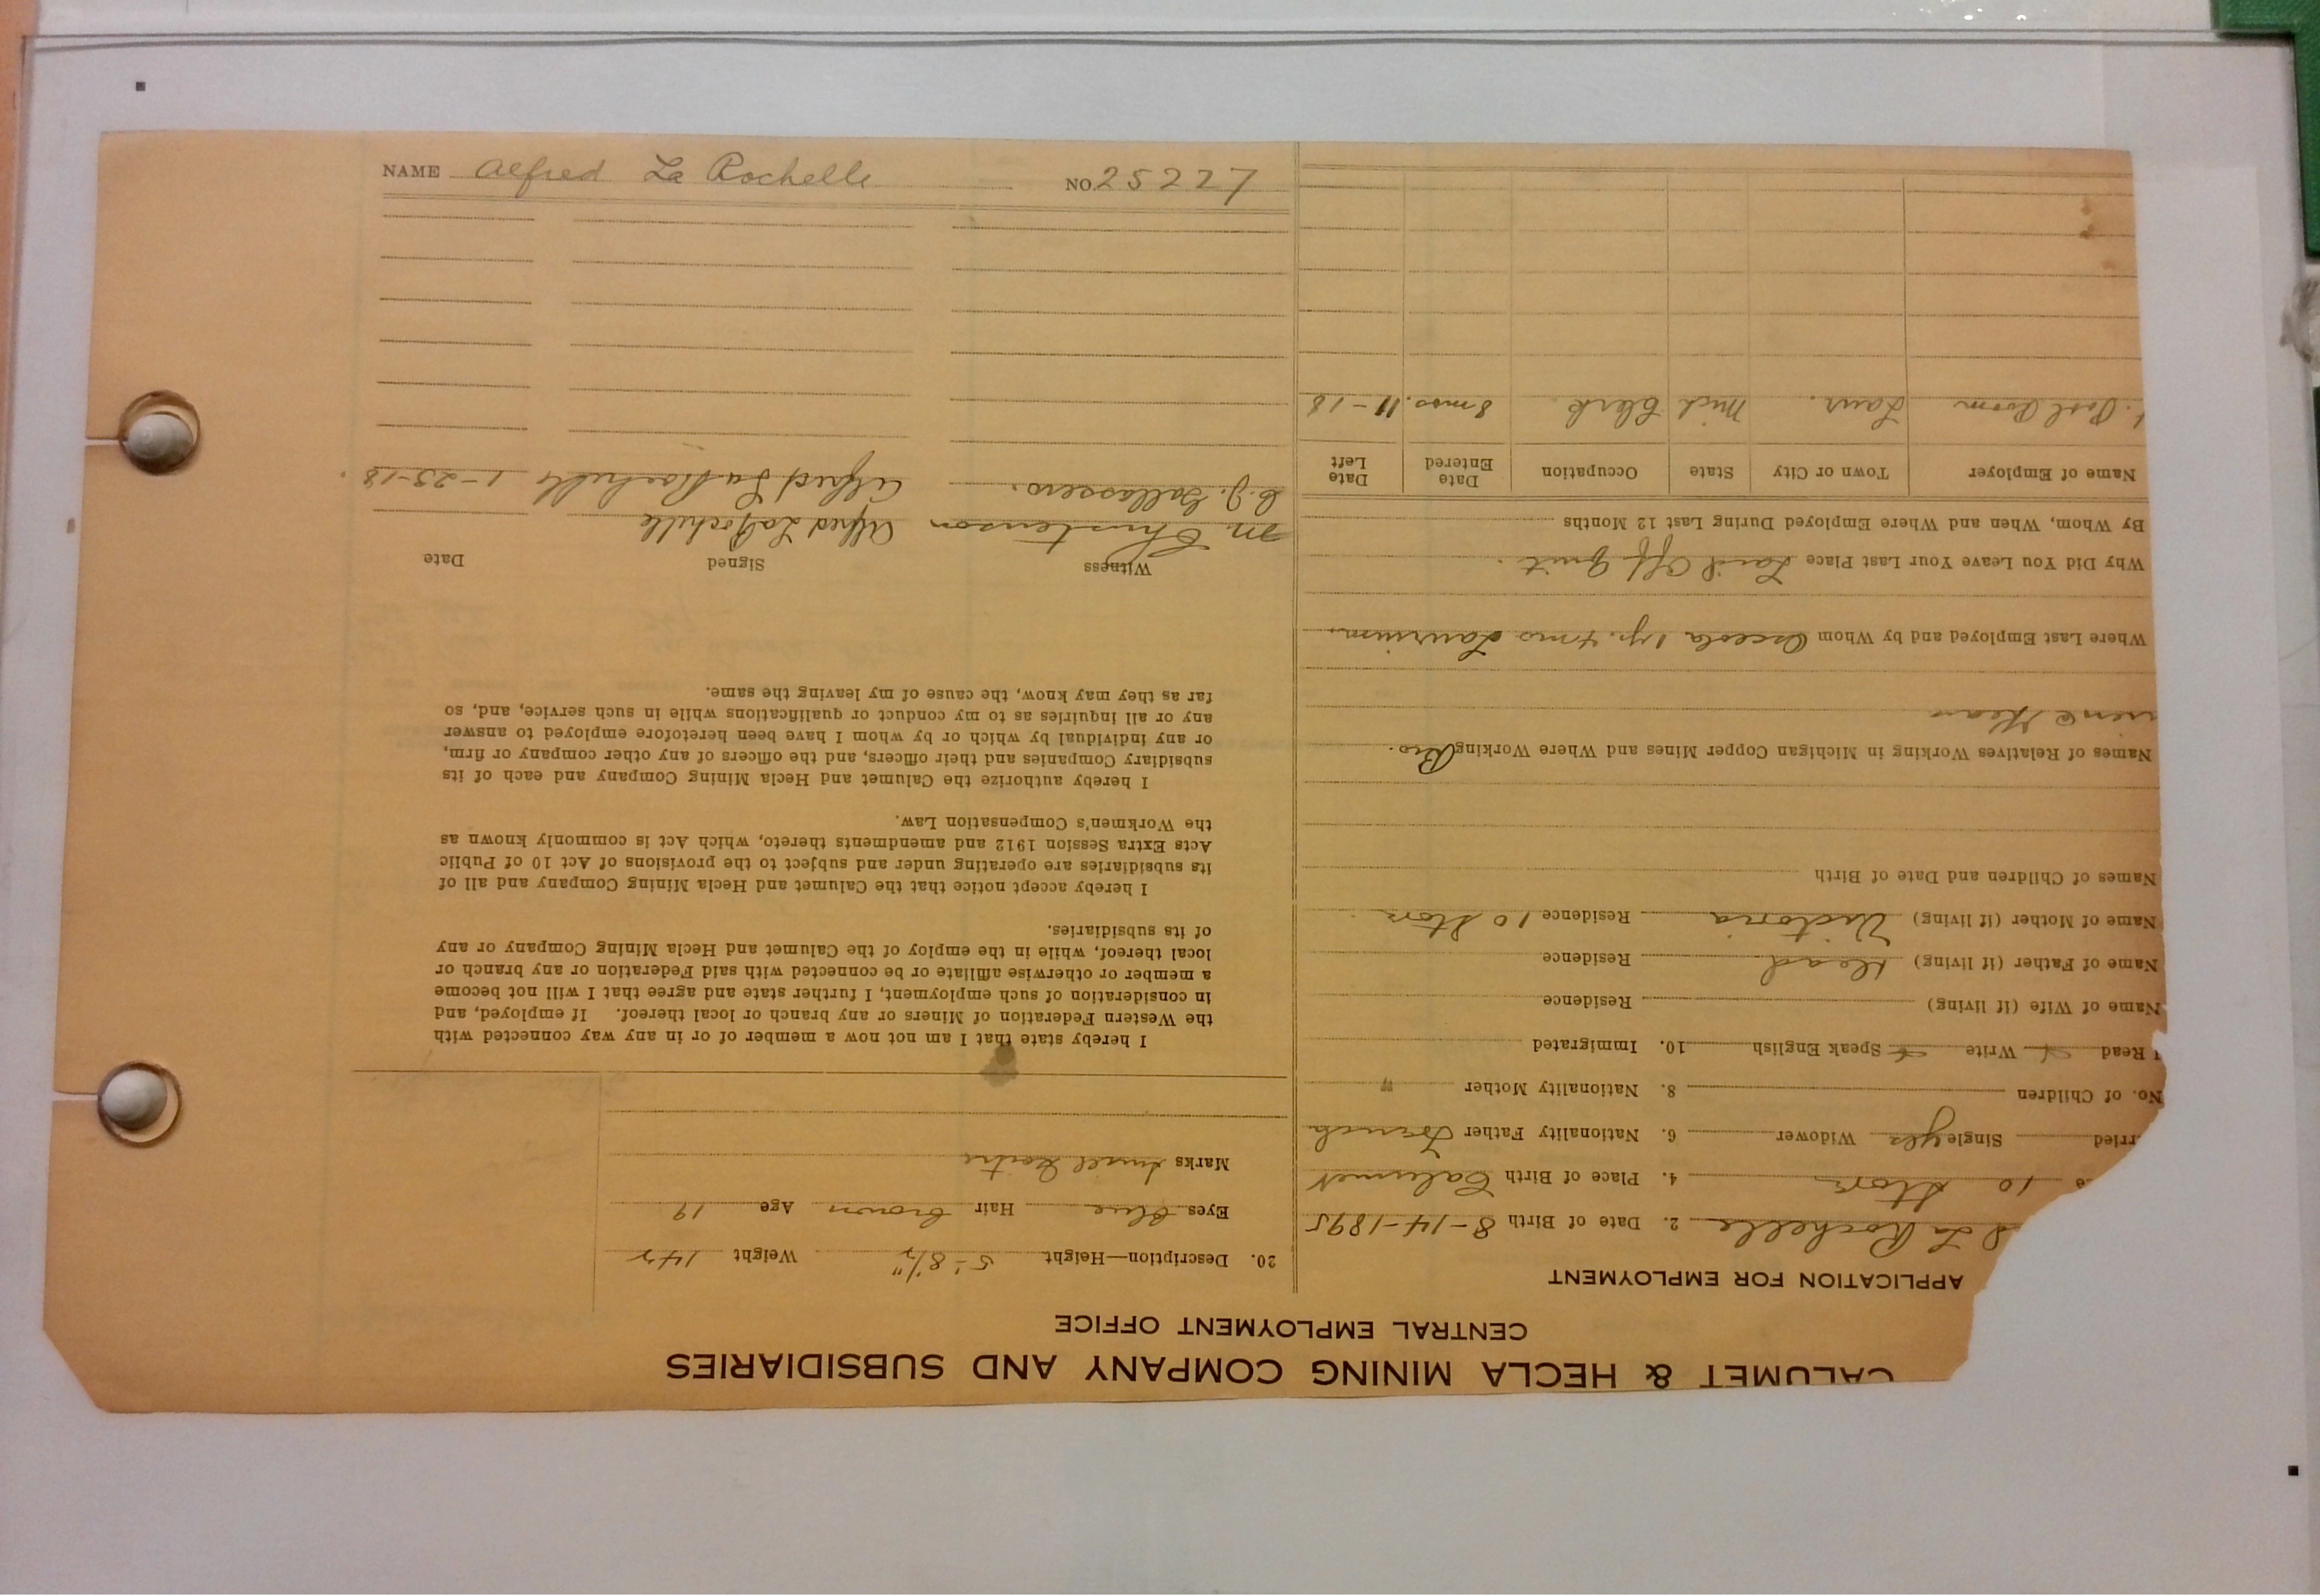 NAME Alfred La Rochelle NO. 25227
CALUMET & HECLA MINING COMPANY AND SUBSIDIARIES
CENTRAL EMPLOYMENT OFFICE
APPLICATION FOR EMPLOYMENT
La Rochelle 2. Date of Birth 8-14-1895
10 4. Place of Birth Calumet
rried Single yes Widower 6. Nationality Father French
No. of Children 8. Nationality Mother "
Read Write Speak English 10. Immigrated
Name of Wife (if living) Residence
Name of Father (if living) Dead Residence
Name of Mother (if living) Victoria Residence 10
Names of Children and Date of Birth
Names of Relatives Working in Michigan Copper Mines and Where Working Bro.
Where Last Employed and by Whom Osceola 1 yr. 4 mos Laurium.
Why Did You Leave Your Last Place Laid Off Quit.
By Whom, When and Where Employed During Last 12 Months
Name of Employer Town or City State Occupation Date Entered Date Left
Pool Room Laur. Mich Clerk 8 mos. 11-18
20. Description—Height 5-8½" Weight 145
Eyes Blue Hair Brown Age 19
Marks
I hereby state that I am not now a member of or in any way connected with
the Western Federation of Miners or any branch or local thereof. If employed, and
in consideration of such employment, I further state and agree that I will not become
a member or otherwise affiliate or be connected with said Federation or any branch or
local thereof, while in the employ of the Calumet and Hecla Mining Company or any
of its subsidiaries.
I hereby accept notice that the Calumet and Hecla Mining Company and all of
its subsidiaries are operating under and subject to the provisions of Act 10 of Public
Acts Extra Session 1912 and amendments thereto, which Act is commonly known as
the Workmen's Compensation Law.
I hereby authorize the Calumet and Hecla Mining Company and each of its
subsidiary Companies and their officers, and the officers of any other company or firm,
or any individual by which or by whom I have been heretofore employed to answer
any or all inquiries as to my conduct or qualifications while in such service, and, so
far as they may know, the cause of my leaving the same.
Witness Signed Date
M Christenson Alfred LaRochelle
C. J. Alfred La Rochelle 1-23-18